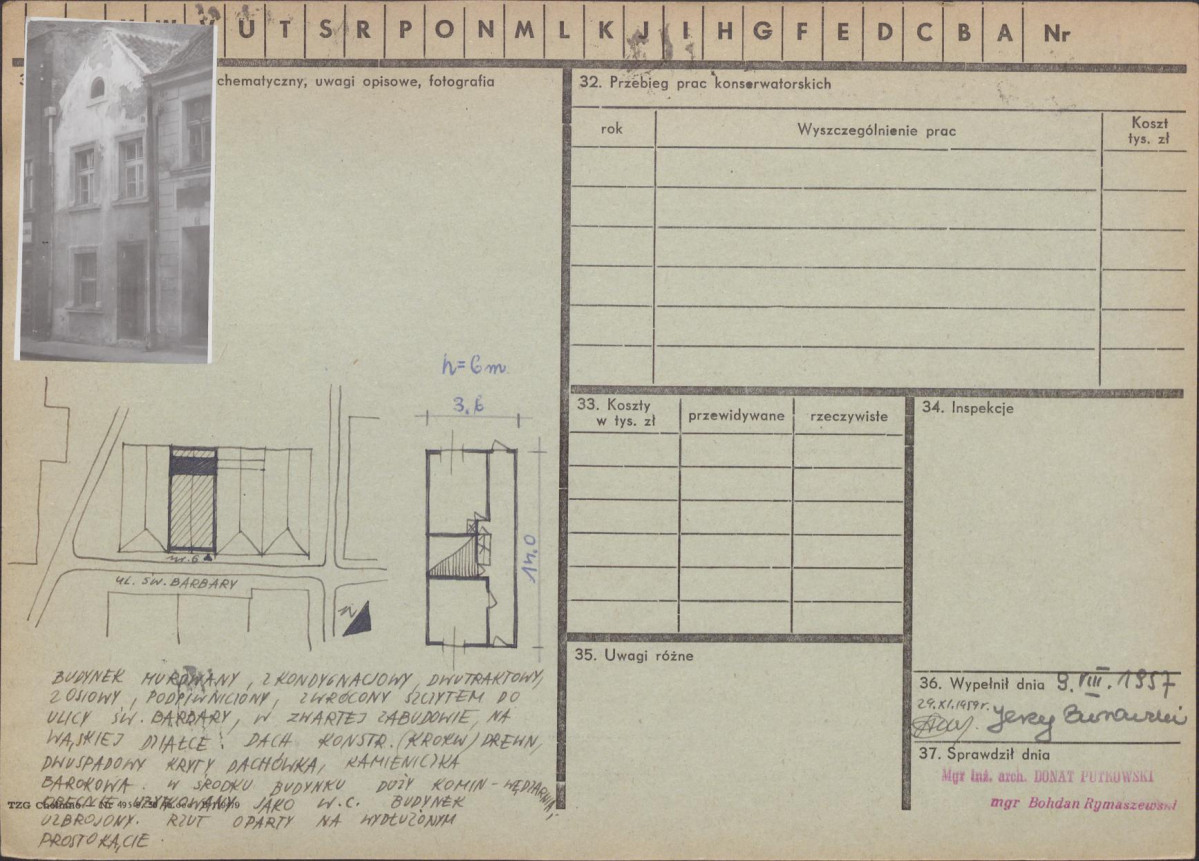 U T S R P O N M L K J I H G F E D C B A Nr
chematyczny, uwagi opisowe, fotografia
32. Przebieg prac konserwatorskich
rok
Wyszczególnienie prac
Koszt
tys. zł
h=6m
3,6
14,0
nr. 6
UL. ŚW. BARBARY
N
BUDYNEK MUROWANY, 2 KONDYGNACJOWY, DWUTRAKTOWY,
2 OSIOWY, PODPIWNICZONY, ZWRÓCONY SZCZYTEM DO
ULICY ŚW. BARBARY, W ZWARTEJ ZABUDOWIE, NA
WĄSKIEJ DZIAŁCE. DACH KONSTR. (KROKW) DREWN,
DWUSPADOWY KRYTY DACHÓWKĄ, KAMIENICZKA
BAROKOWA. W ŚRODKU BUDYNKU DUŻY KOMIN-WĘDZARNIA,
OBECNIE UŻYTKOWANY JAKO W.C. BUDYNEK
UZBROJONY. RZUT OPARTY NA WYDŁUŻONYM
PROSTOKĄCIE.
TZG Chełmno
33. Koszty
w tys. zł
przewidywane
rzeczywiste
34. Inspekcje
35. Uwagi różne
36. Wypełnił dnia 9.VIII.1957
29.XI.1959r.
Jerzy
37. Sprawdził dnia
Mgr inż. arch. DONAT PUTKOWSKI
mgr Bohdan Rymaszewski